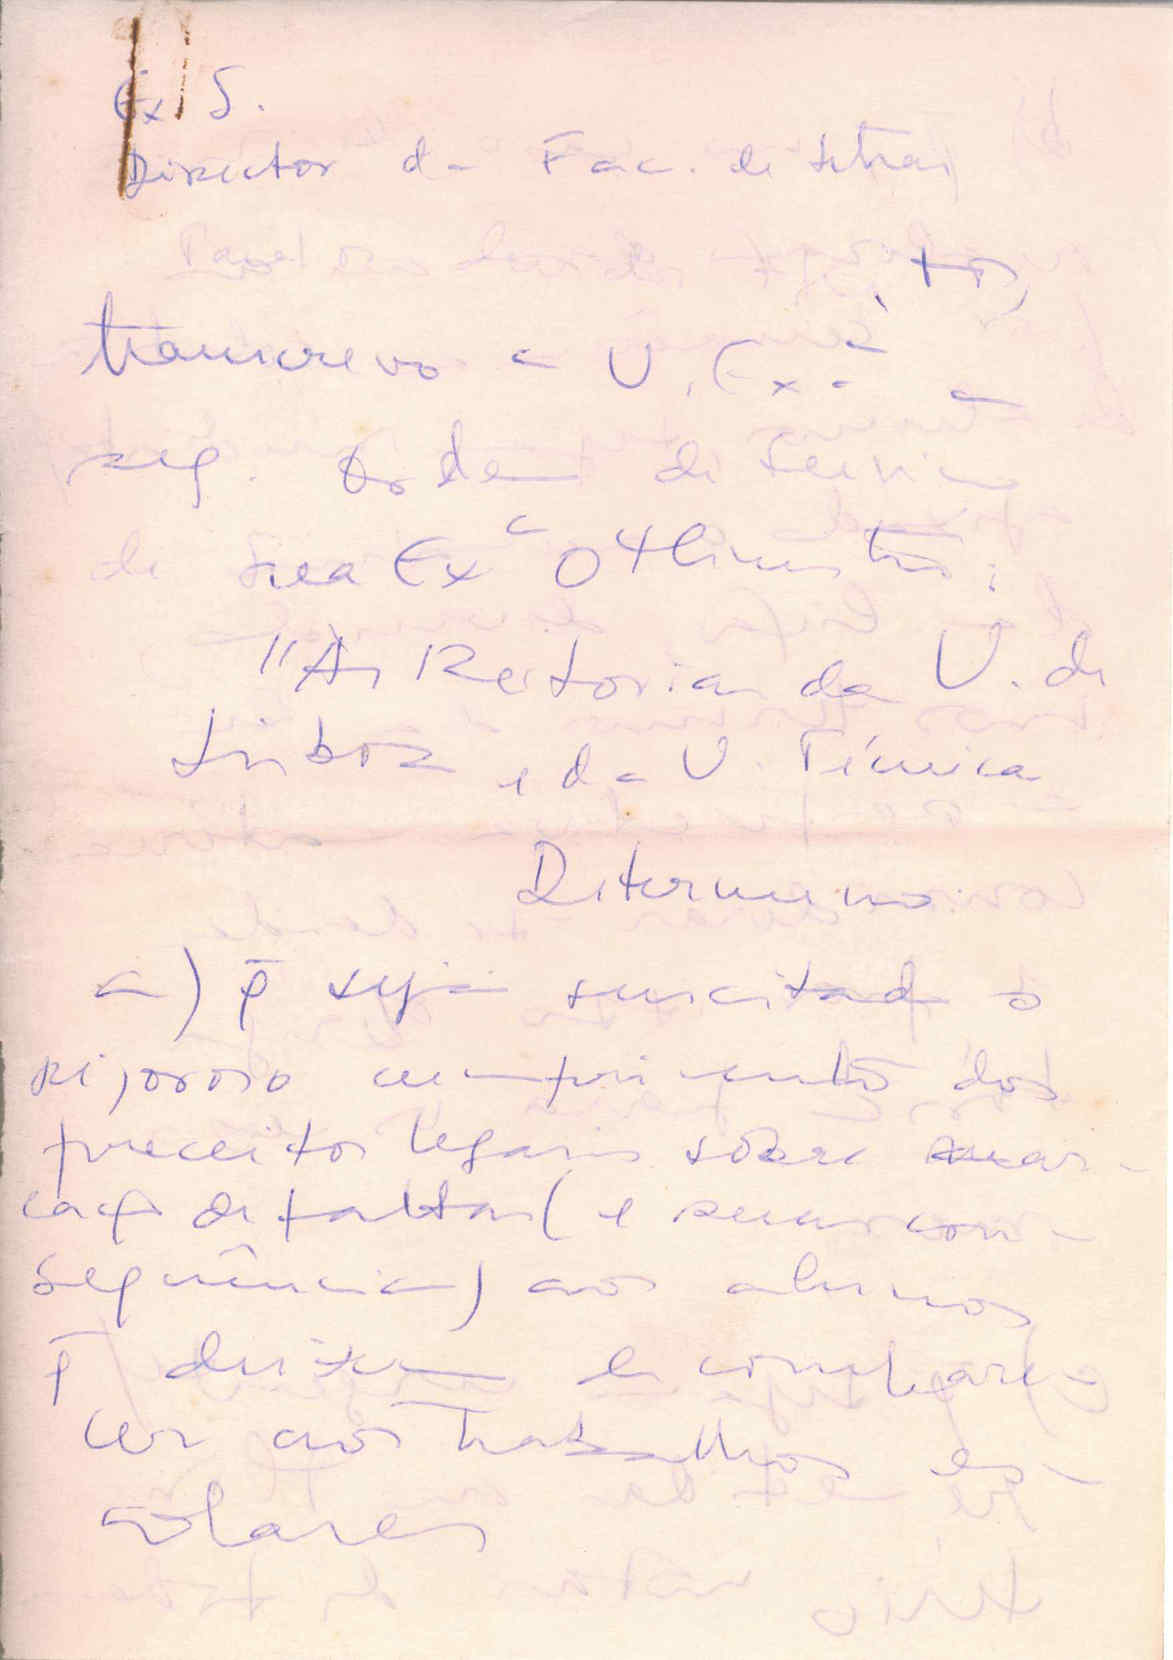 Ex. S.
Director da Fac. de Letras
tos,
transcrevo a V. Exª a
seg. Ordem de Serviço
de Sua Exª O Ministro:
"Às Reitorias da U. de
Lisboa e da U. Técnica
Determino:
a) q̄ seja suscitado o
rigoroso cumprimento dos
preceitos legais sôbre mar-
cação de faltas (e suas con-
sequência) aos alunos
q̄ deixem de compare-
cer aos trabalhos es-
colares